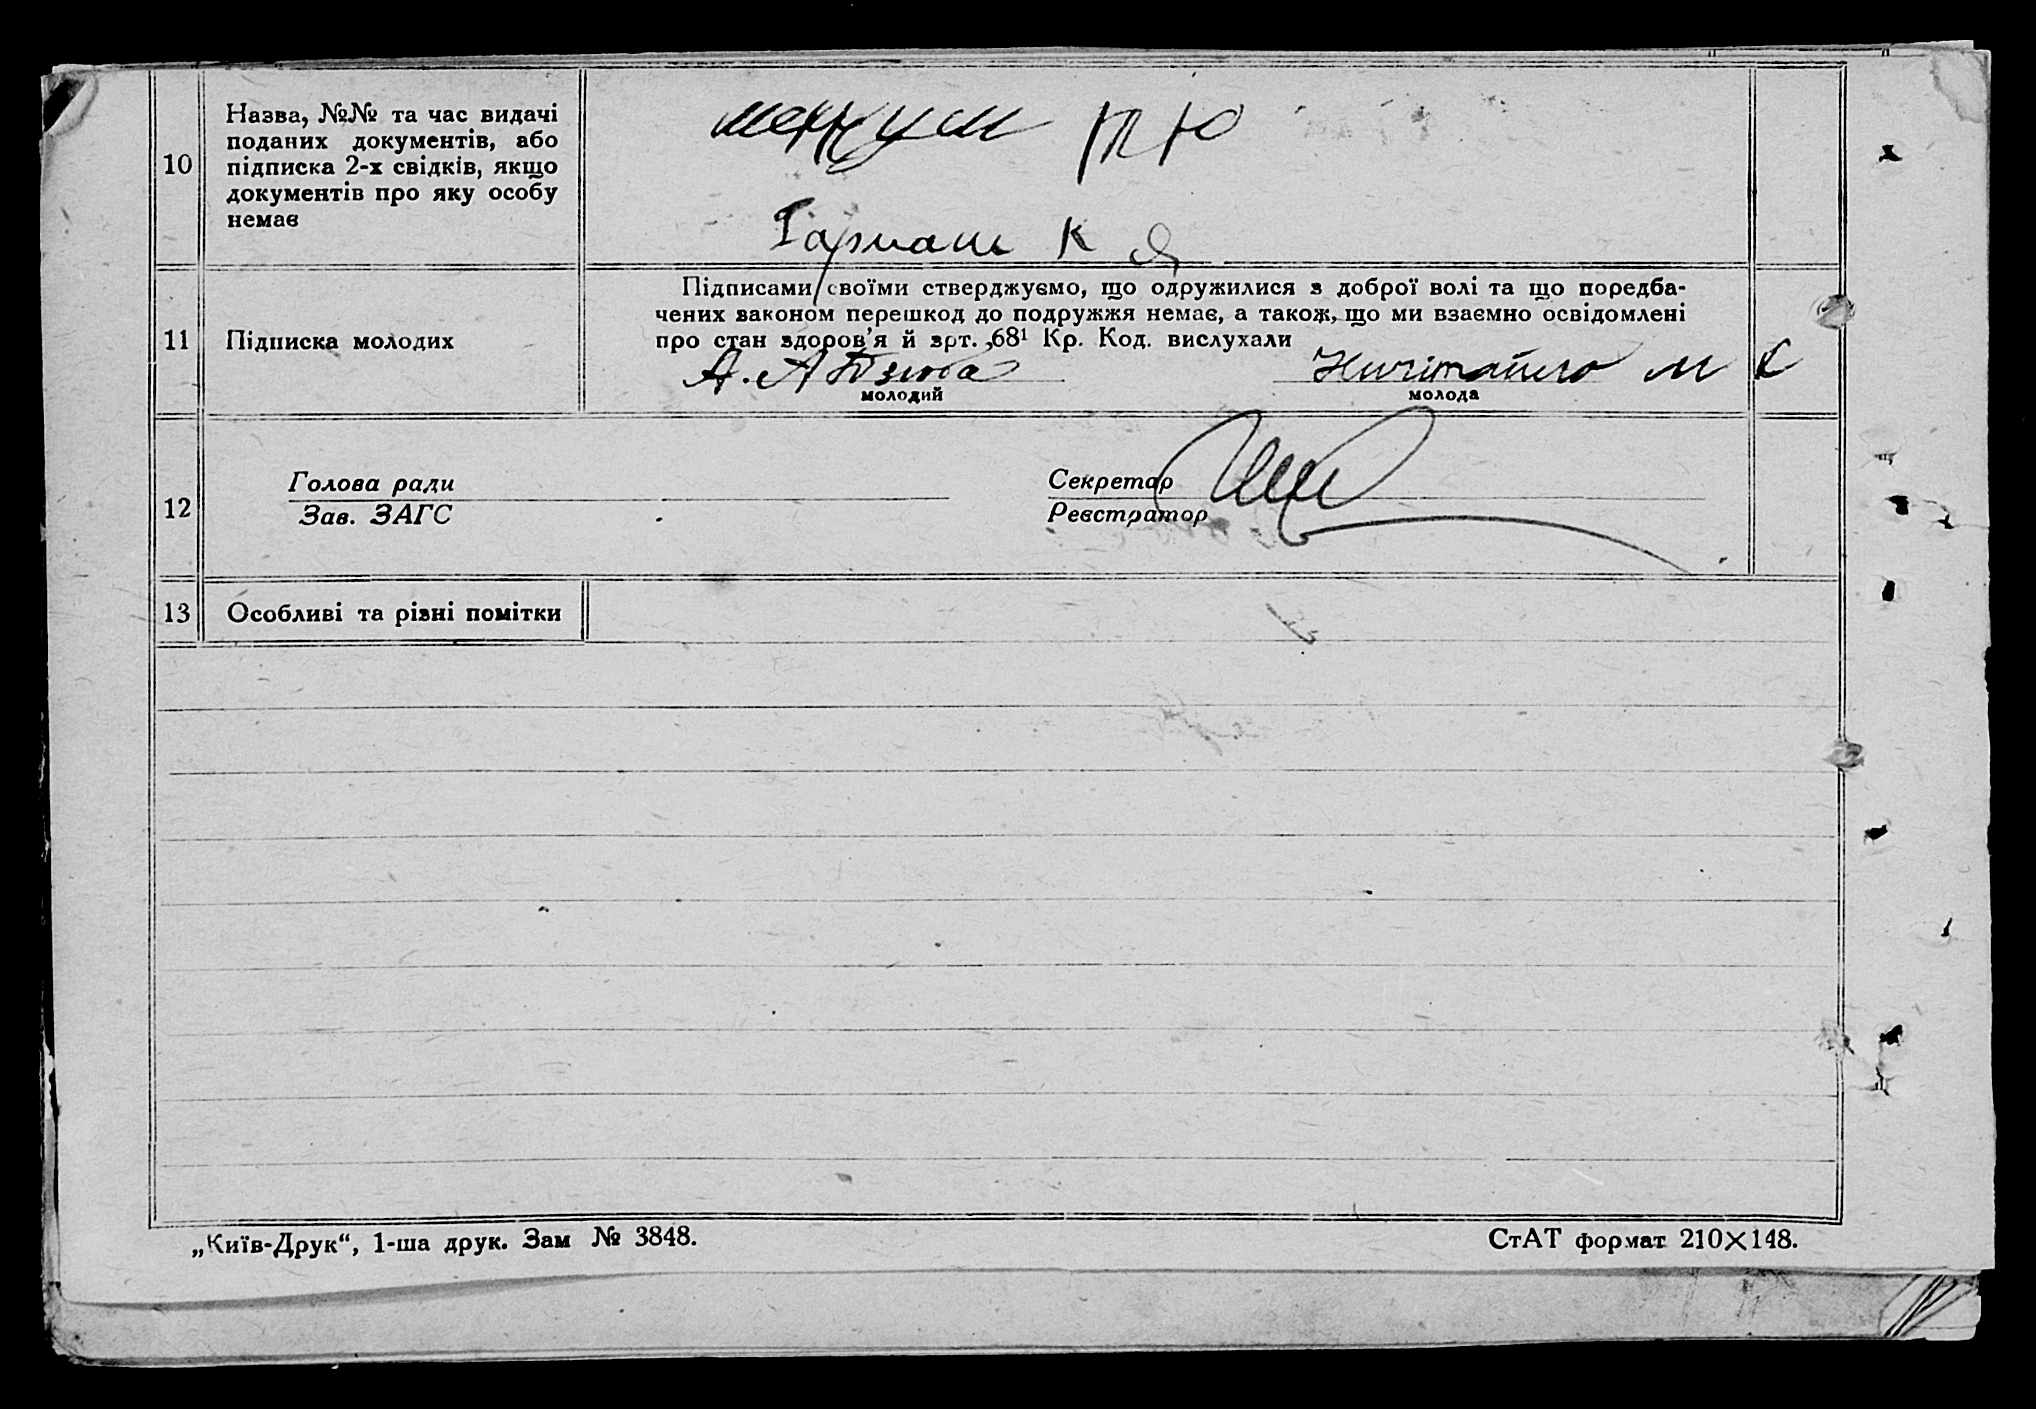 10
Назва, №№ та час видачі
поданих документів, або
підписка 2-х свідків, якщо
документів про яку особу
немає
П Ю
Гармаш К Я
11
Підписка молодих
Підписами своїми стверджуємо, що одружилися з доброї волі та що поредба-
чених законом перешкод до подружжя немає, а також, що ми взаємно освідомлені
про стан здоров'я й арт. 68¹ Кр. Код. вислухали
А. А Бзюба
молодий
М К
молода
12
Голова ради
Зав. ЗАГС
Секретар
Реєстратор
13
Особливі та різні помітки
„Київ-Друк“, 1-ша друк. Зам № 3848.
СтАТ формат 210×148.